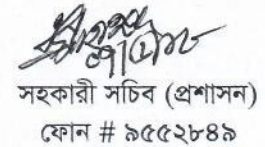 সহকারী সচিব (প্রশাসন)
ফোন # ৯৫৫২৮৪৯